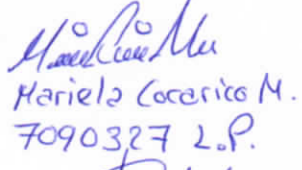 Mariela Cocarico M.
7090327 L.P.